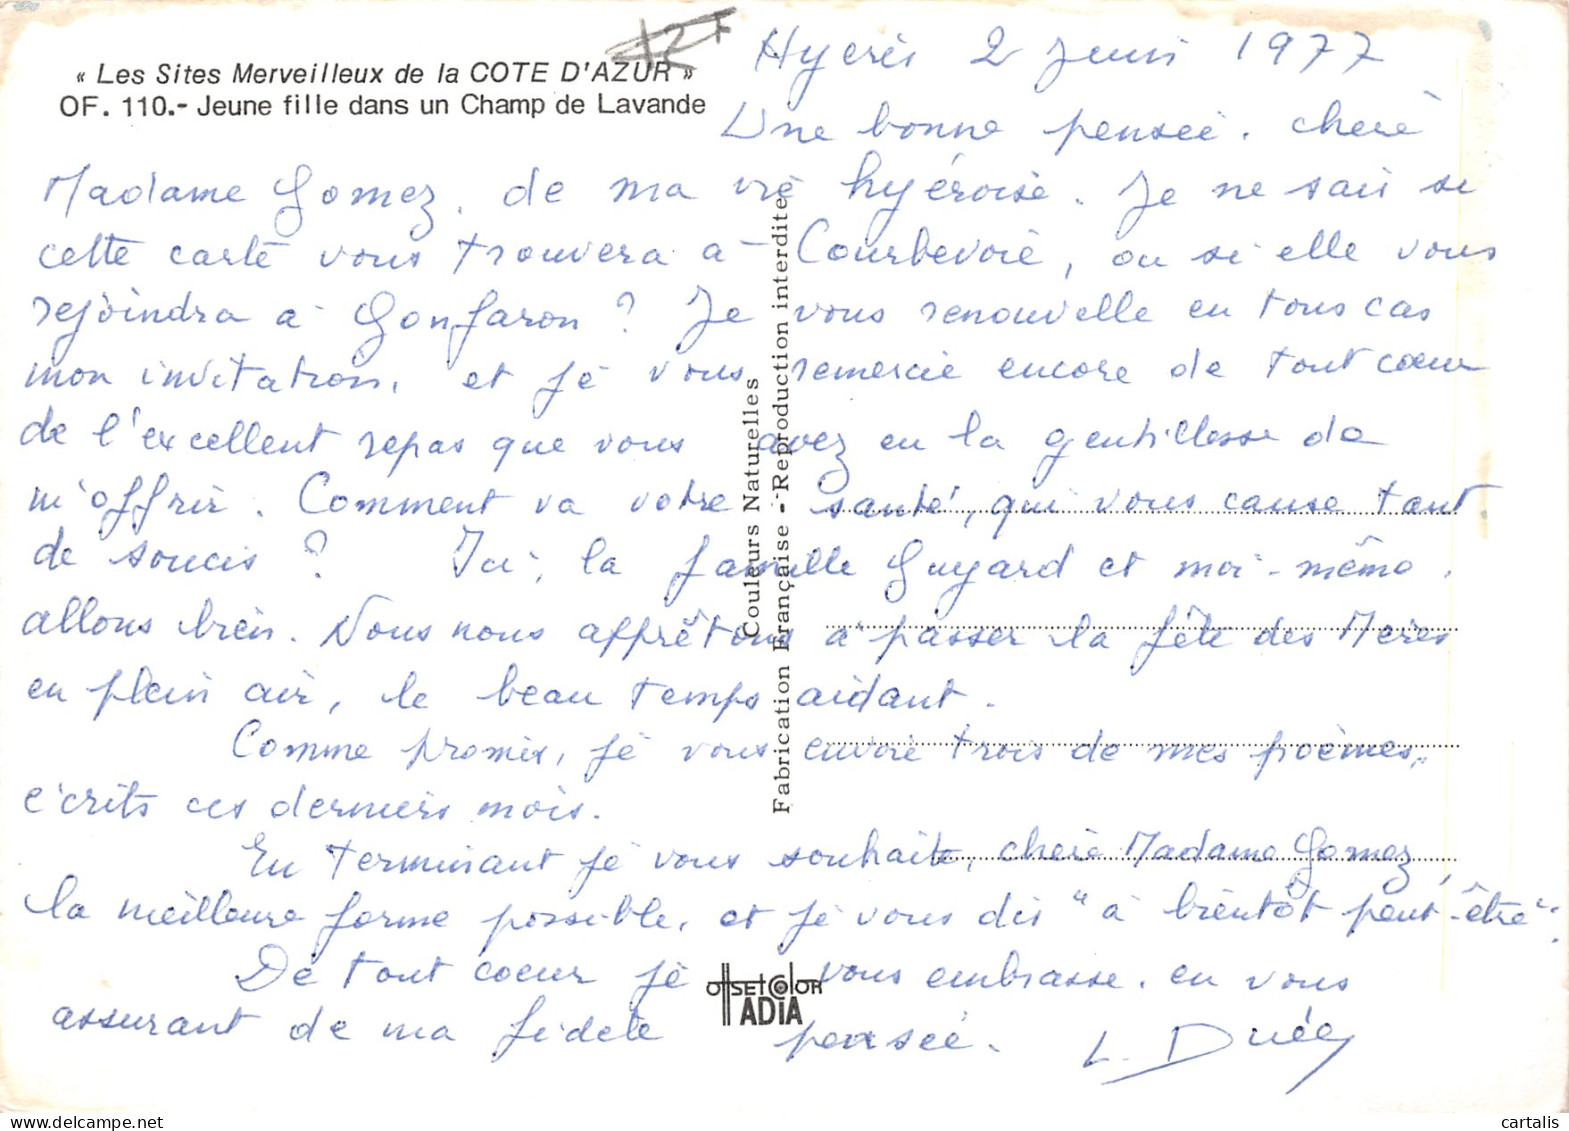 « Les Sites Merveilleux de la COTE D'AZUR »
OF. 110.- Jeune fille dans un Champ de Lavande
Hyères 2 Juin 1977
Une bonne pensée, chère
Madame Gomez, de ma vie hyéroise. Je ne sais si
cette carte vous trouvera à Courbevoie, ou si elle vous
rejoindra à Gonfaron ? Je vous renouvelle en tous cas
mon invitation, et je vous remercie encore de tout coeur
de l'excellent repas que vous avez eu la gentillesse de
m'offrir. Comment va votre santé, qui vous cause tant
de soucis ? Ici, la famille Guyard et moi-même,
allons bien. Nous nous apprêtons à passer la fête des Mères
en plein air, le beau temps aidant.
Comme promis, je vous envoie trois de mes poèmes,
écrits ces derniers mois.
En terminant je vous souhaite, chère Madame Gomez,
la meilleure forme possible, et je vous dis "à bientôt peut-être".
De tout coeur je vous embrasse, en vous
assurant de ma fidèle pensée.
Couleurs Naturelles
Fabrication Française - Reproduction interdite
OffSET COlOR
ADIA
cartalis